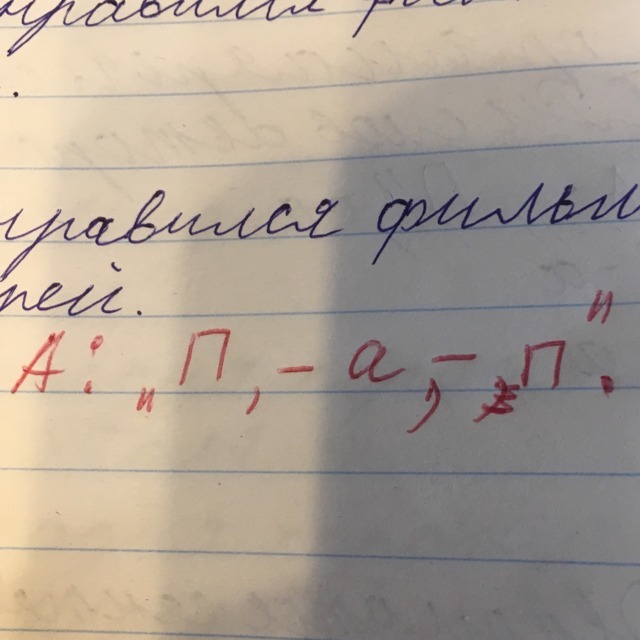 нравился
нравился фильм
рей.
А: „П, – а, – п".